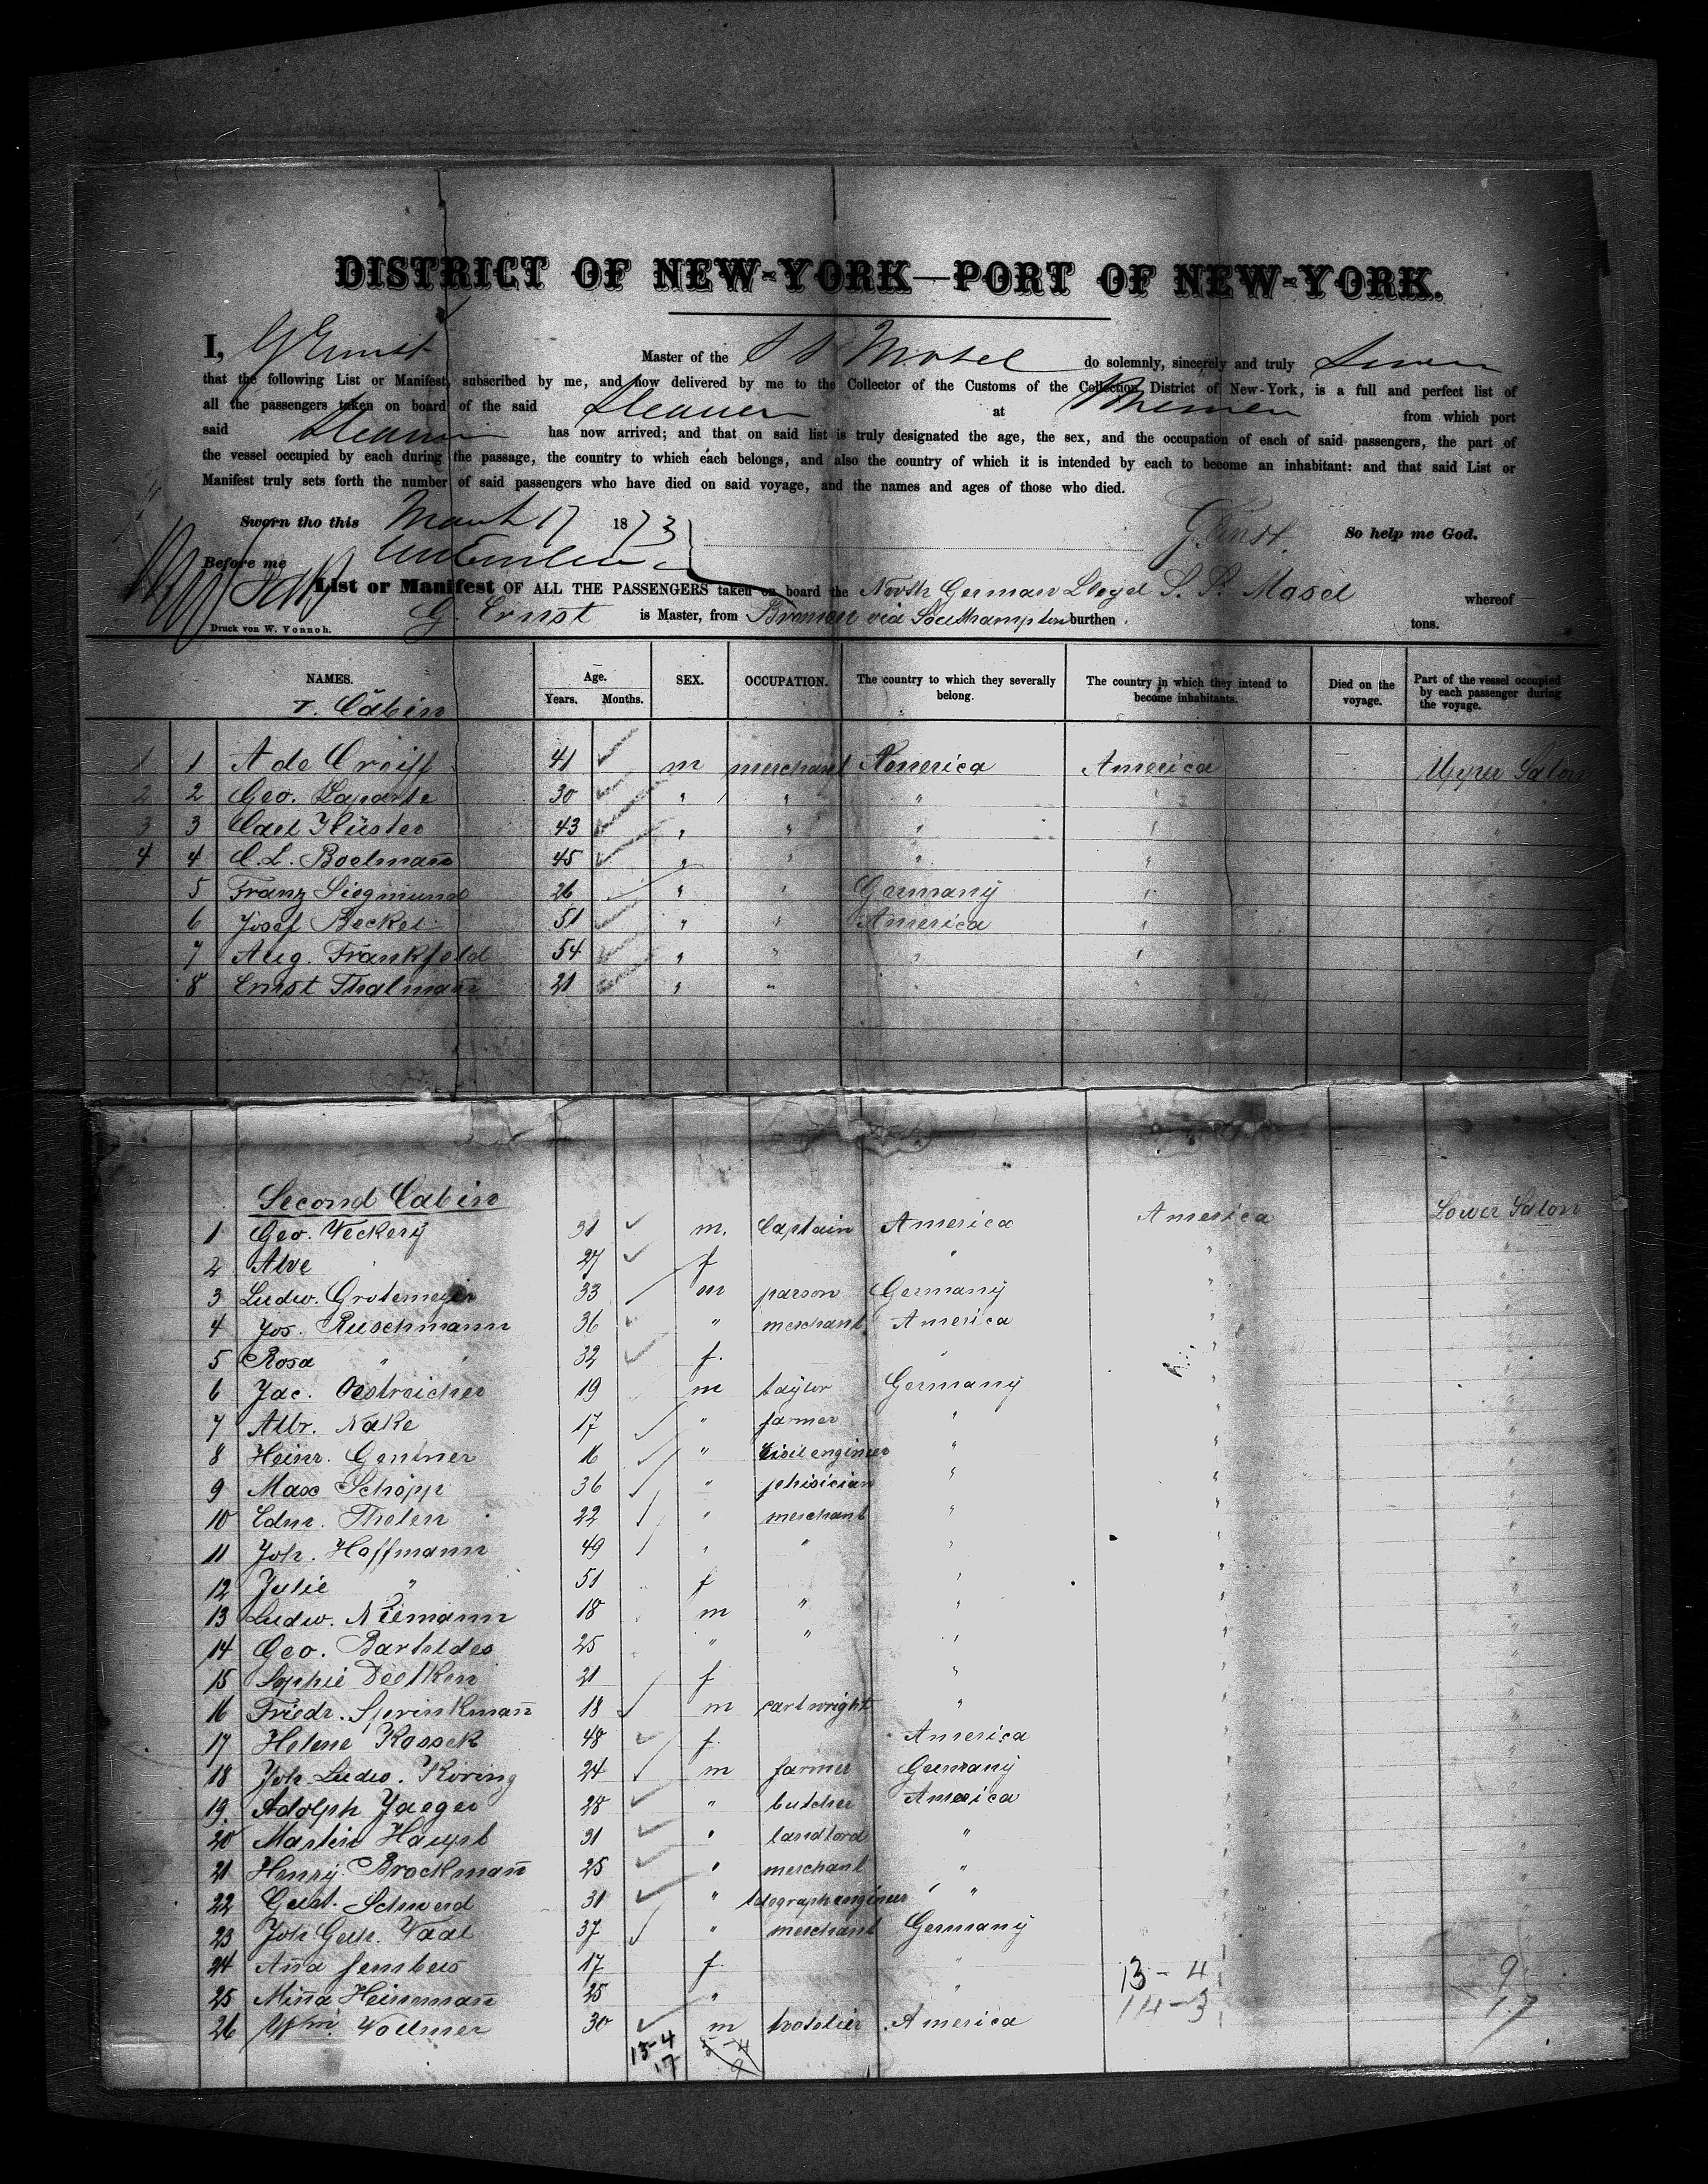 DISTRICT OF NEW-YORK—PORT OF NEW-YORK.
I, G Ernst Master of the S S Mosel do solemnly, sincerely and truly Swear
that the following List or Manifest, subscribed by me, and now delivered by me to the Collector of the Customs of the Collection District of New-York, is a full and perfect list of
all the passengers taken on board of the said Steamer at Bremen from which port
said Steamer has now arrived; and that on said list is truly designated the age, the sex, and the occupation of each of said passengers, the part of
the vessel occupied by each during the passage, the country to which each belongs, and also the country of which it is intended by each to become an inhabitant: and that said List or
Manifest truly sets forth the number of said passengers who have died on said voyage, and the names and ages of those who died.
Sworn tho this March 17 1873 G. Ernst. So help me God.
Before me
List or Manifest OF ALL THE PASSENGERS taken on board the North German Lloyd S. S. Mosel whereof
G. Ernst is Master, from Bremen via Southampton burthen tons.
Druck von W. Vonnoh.
NAMES. Age. Years. Months. SEX. OCCUPATION. The country to which they severally belong. The country in which they intend to become inhabitants. Died on the voyage. Part of the vessel occupied by each passenger during the voyage.
I. Cabin
1 1 A de Creiff 41 m merchant America America Upper Salon
2 2 Geo. Laporte 30 " " " "
3 3 Carl Küster 43 " " " " "
4 4 C. L. Boelmañ 45 " " " " "
5 Franz Siegmund 26 " " Germany "
6 Josef Becker 51 " " America "
7 Aug. Frankfeld 54 " " " "
8 Ernst Thalmañ 21 " " " "
Second Cabin
1 Geo. Weckerij 31 m. Captain America America Lower Salon
2 Alve " 27 f " " "
3 Ludw. Grotemeyer 33 m parson Germany " "
4 Jos. Ruschmann 36 " merchant America " "
5 Rosa " 32 f. " " "
6 Jac. Oestreicher 19 m taylor Germany " "
7 Albr. Nake 17 " farmer " " "
8 Heinr. Gentner 16 " Civil engineer " " "
9 Max Schöpp 36 " phisician " " "
10 Edm. Tholen 22 " merchant " " "
11 Joh. Hoffmann 49 " " " " "
12 Julie " 51 f " " "
13 Ludw. Niemann 18 m " " " "
14 Geo. Barteldes 25 " " " " "
15 Sophie Deetken 21 f " " "
16 Friedr. Sperinkmañ 18 m cartwright " " "
17 Helene Kossek 48 f. America " "
18 Joh. Ludw. Koring 24 m farmer Germany " "
19. Adolph Jaeger 28 " butcher America " "
20 Martin Haupt 31 " landlord " " "
21 Henry Brockmañ 25 " merchant " " "
22 Gust. Schwerd 31 " telegraph engineer " " "
23 Joh Gerh. Waal 37 " merchant Germany " "
24 Aña 17 f. " 13-4 9
25 Miña Heinemañ 25 " " 14-3 17
26 Wm. Vollmer 30 m hotelier America
13-4
17